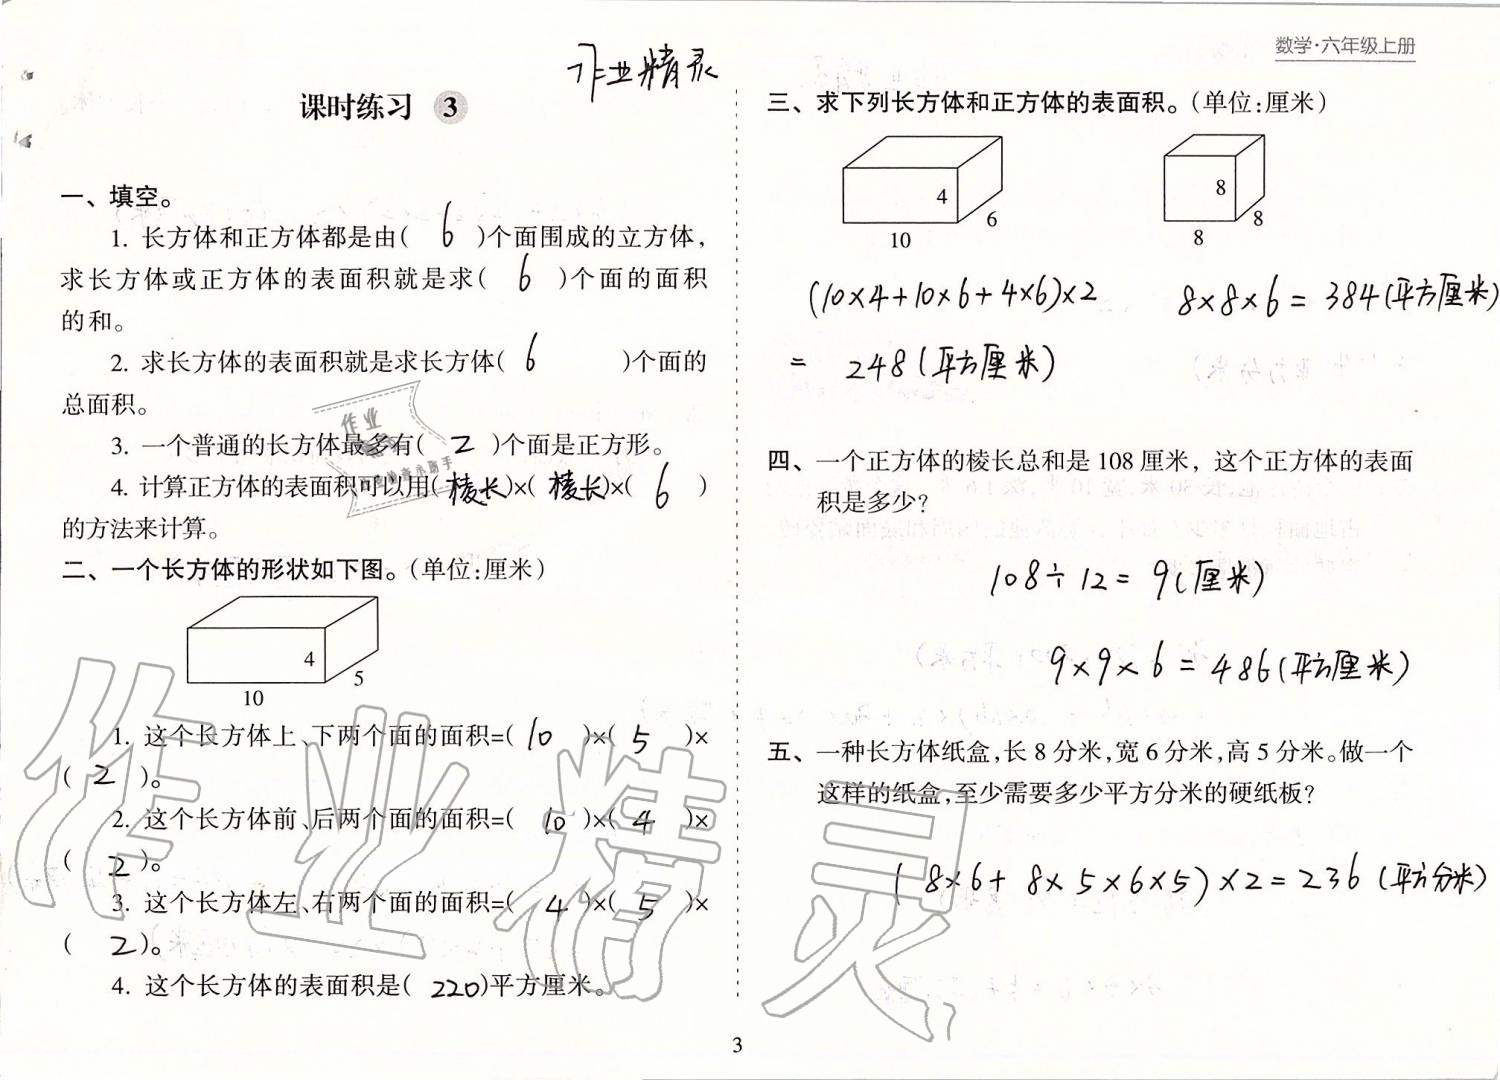 作业精灵
数学·六年级上册
课时练习 3
一、填空。
1. 长方体和正方体都是由( 6 )个面围成的立方体，
求长方体或正方体的表面积就是求( 6 )个面的面积
的和。
2. 求长方体的表面积就是求长方体( 6 )个面的
总面积。
3. 一个普通的长方体最多有( 2 )个面是正方形。
4. 计算正方体的表面积可以用(棱长)×(棱长)×( 6 )
的方法来计算。
二、一个长方体的形状如下图。(单位:厘米)
4
5
10
1. 这个长方体上、下两个面的面积=( 10 )×( 5 )×
( 2 )。
2. 这个长方体前、后两个面的面积=( 10 )×( 4 )×
( 2 )。
3. 这个长方体左、右两个面的面积=( 4 )×( 5 )×
( 2 )。
4. 这个长方体的表面积是( 220 )平方厘米。
三、求下列长方体和正方体的表面积。(单位:厘米)
4
6
10
8
8
8
(10×4+10×6+4×6)×2
= 248(平方厘米)
8×8×6=384(平方厘米)
四、一个正方体的棱长总和是108厘米，这个正方体的表面
积是多少?
108÷12=9(厘米)
9×9×6=486(平方厘米)
五、一种长方体纸盒,长8分米,宽6分米,高5分米。做一个
这样的纸盒,至少需要多少平方分米的硬纸板?
(8×6+8×5×6×5)×2=236(平方分米)
3
作业
作业精灵